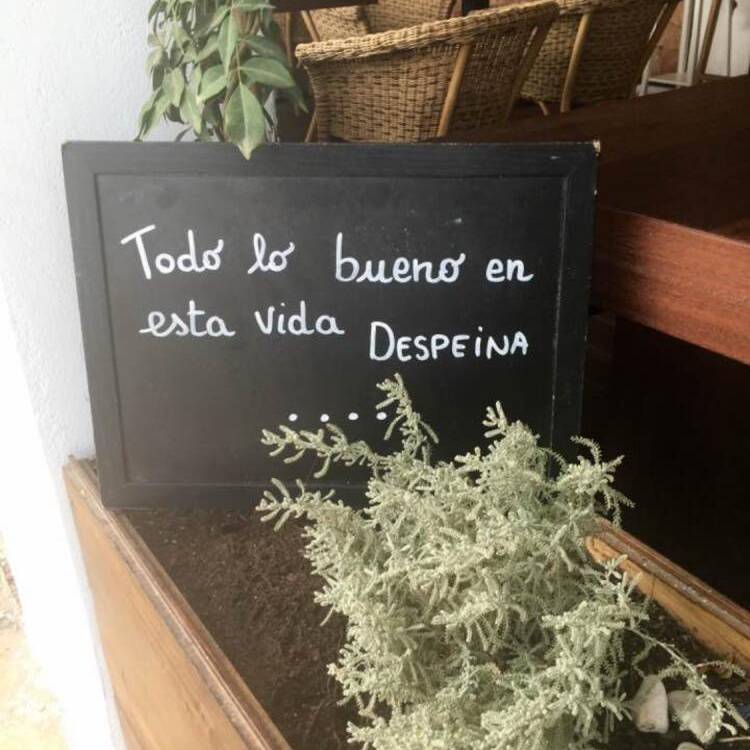 Todo lo bueno en
esta vida DESPEiNA
....